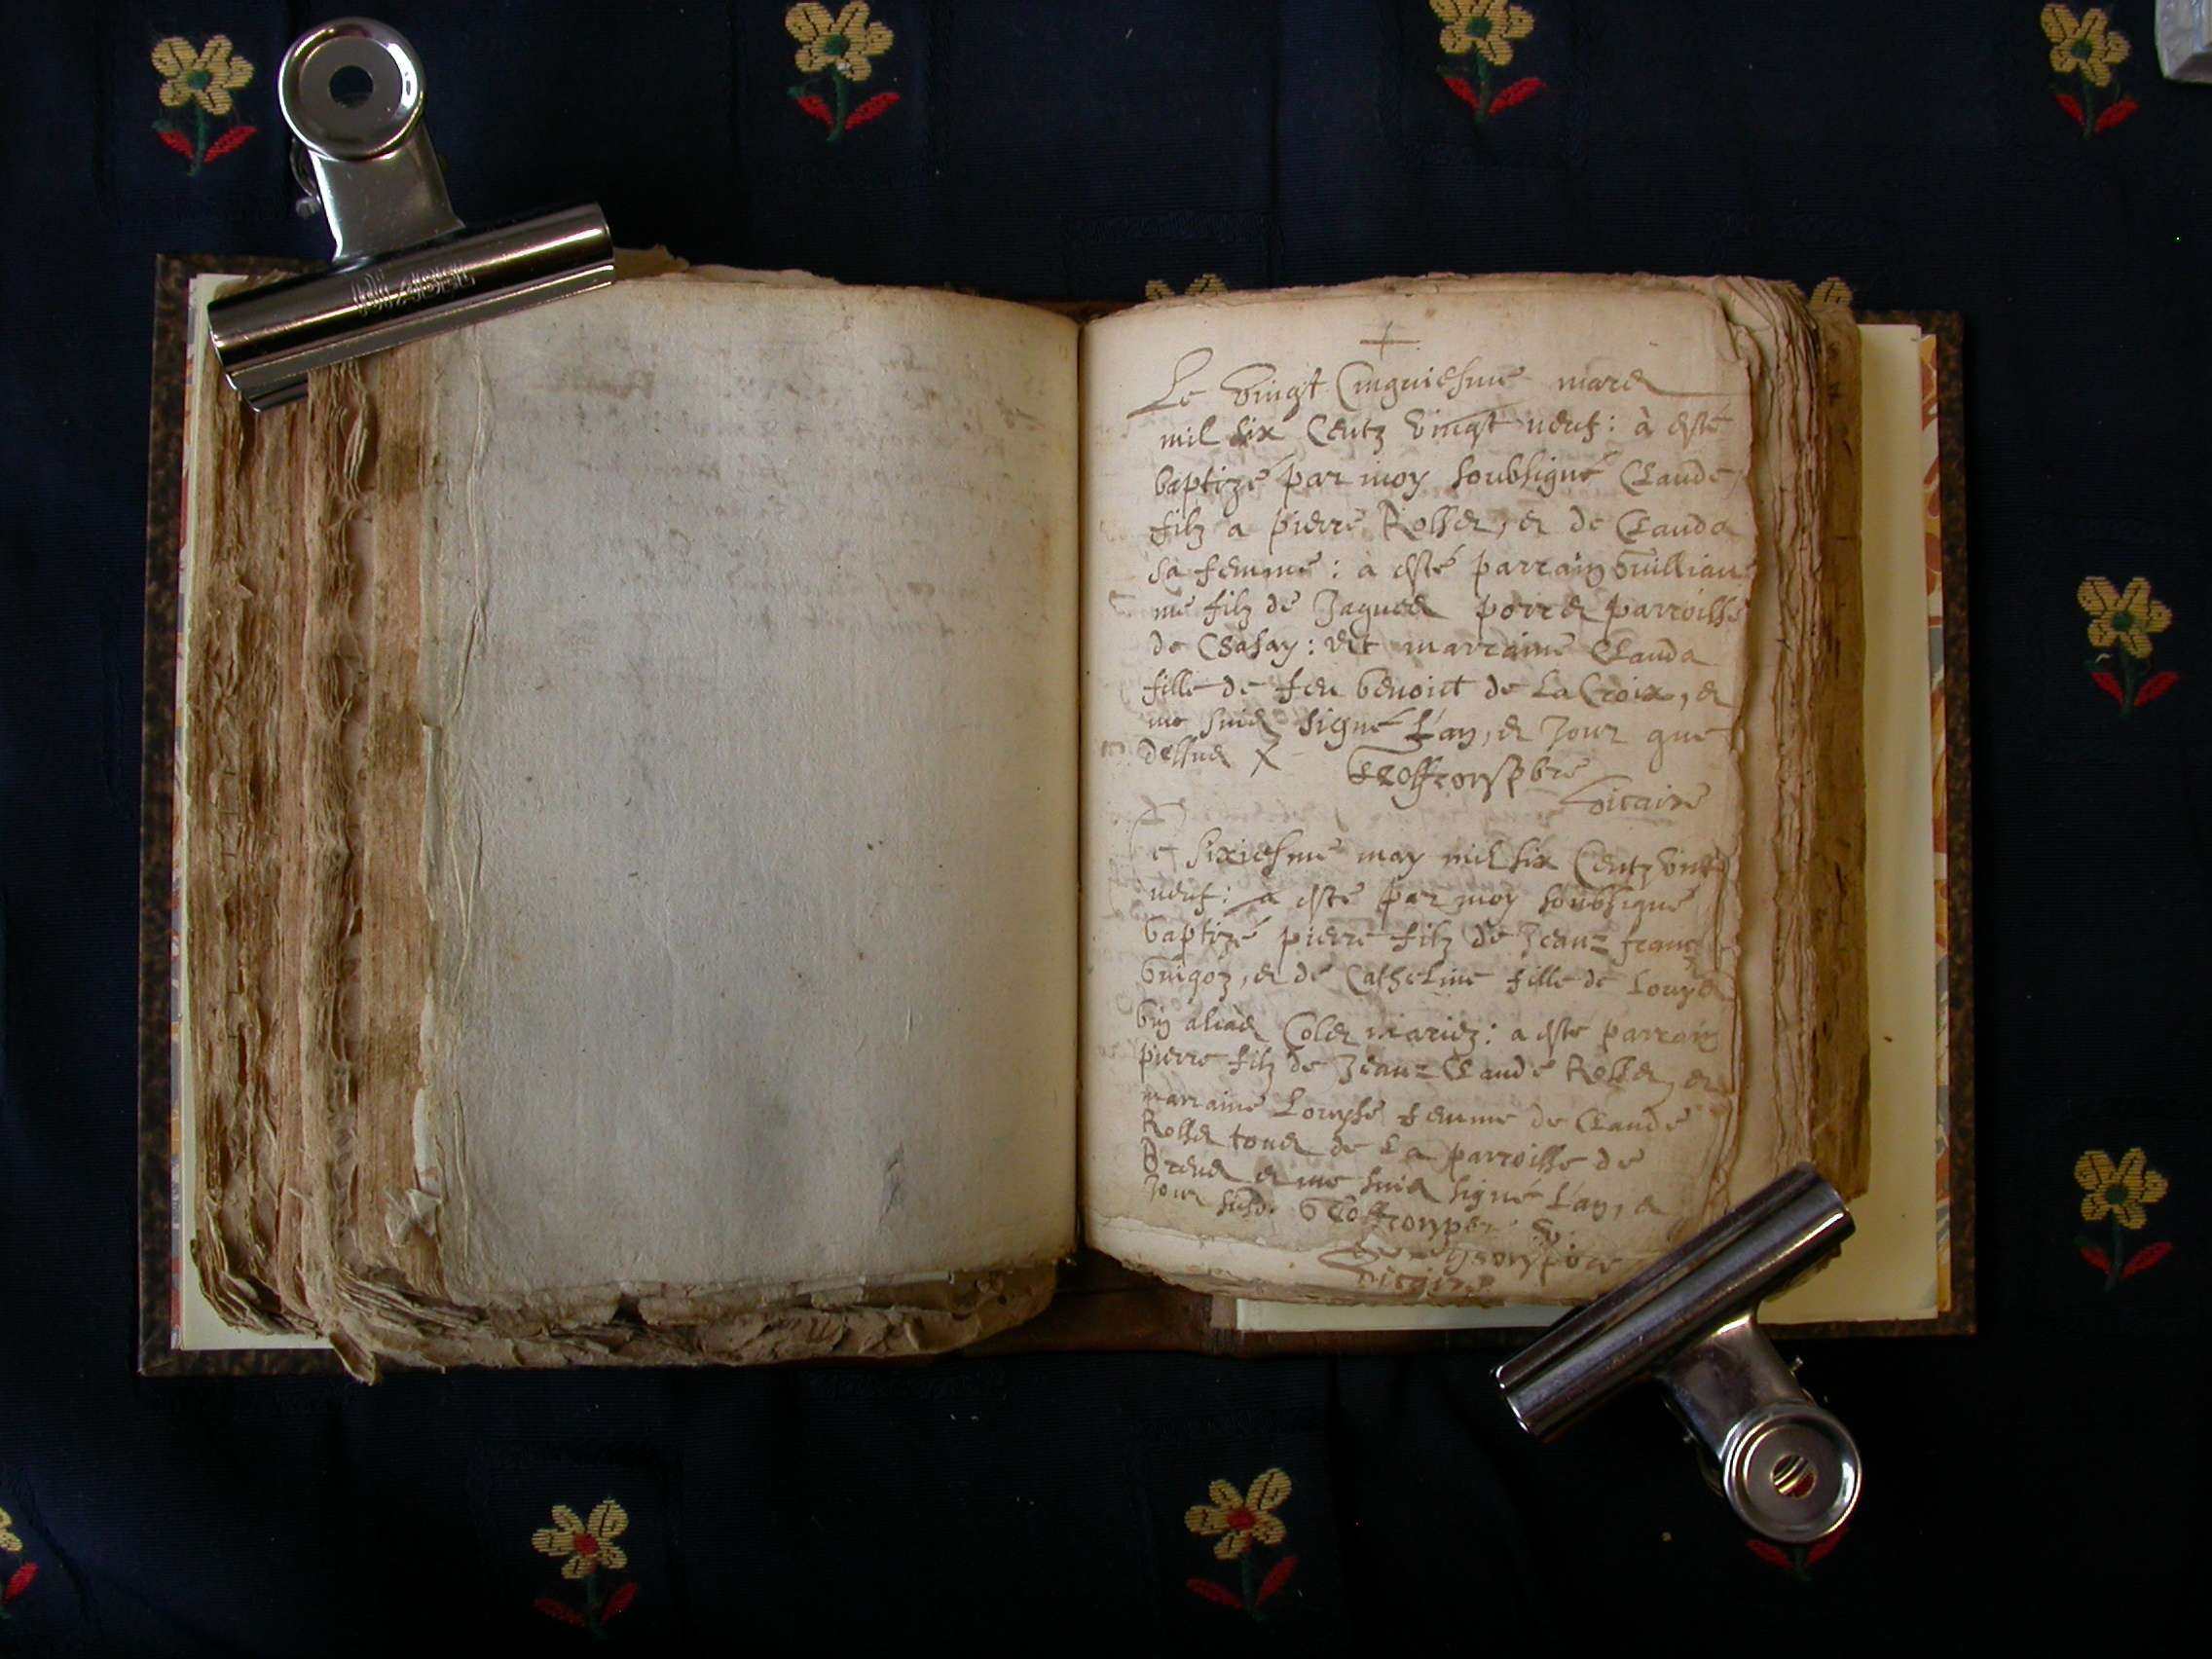 Le vingt Cinquiesme mars
mil six Centz vingt neuf: à esté
baptizé par moy soubsigné Claude,
filz a pierre Rosset, et de Clauda
sa femme: à esté parrain Guillau-
me filz de Jaques parroisse
de et marraine Clauda
fille de feu benoict de La Croix, et
me suis signé L'an, et Jour que
dessus pbre
vicaire
Le sixiesme may mil six Centz vint
neuf: a esté par moy soubsigné
baptizé pierre filz de Jean=françois
et de Catheline fille de Louys
alias mariez: a esté parrain
pierre filz de Jean=Claude Rosset, et
marraine Louyse femme de Claude
Rosset tous de La parroisse de
et me suis signé L'an, et
Jour susd.
vicaire